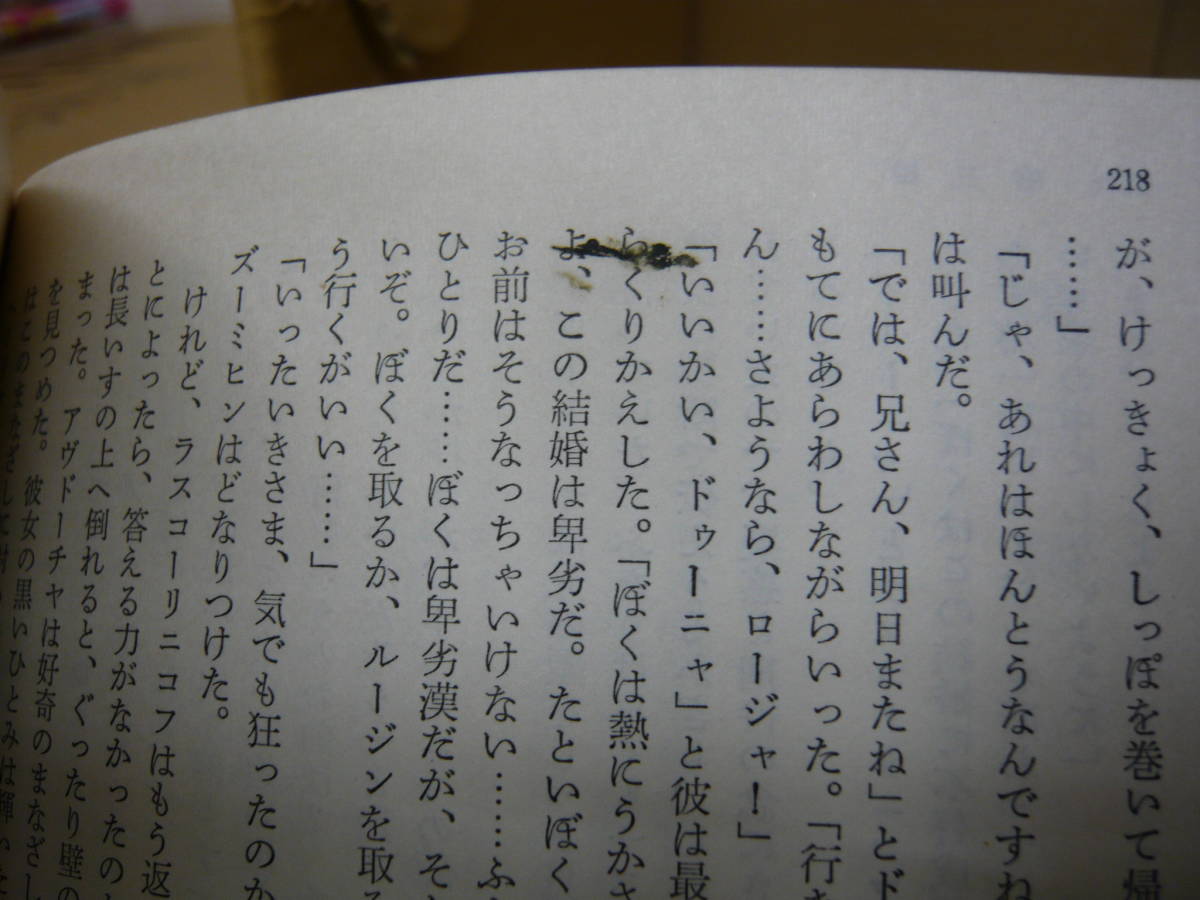 218
が、けっきょく、しっぽを巻いて帰
……」
「じゃ、あれはほんとうなんですね
は叫んだ。
「では、兄さん、明日またね」とド
もてにあらわしながらいった。「行
ん……さようなら、ロージャ！」
「いいかい、ドゥーニャ」と彼は最
らくりかえした。「ぼくは熱にうか
よ、この結婚は卑劣だ。たといぼく
お前はそうなっちゃいけない……ふ
ひとりだ……ぼくは卑劣漢だが、そ
いぞ。ぼくを取るか、ルージンを取
う行くがいい……」
「いったいきさま、気でも狂ったのか
ズーミヒンはどなりつけた。
けれど、ラスコーリニコフはもう返
とによったら、答える力がなかったの
は長いすの上へ倒れると、ぐったり壁の
まった。アヴドーチャは好奇のまなざし
を見つめた。彼女の黒いひとみは輝いた
はこのまなざしに